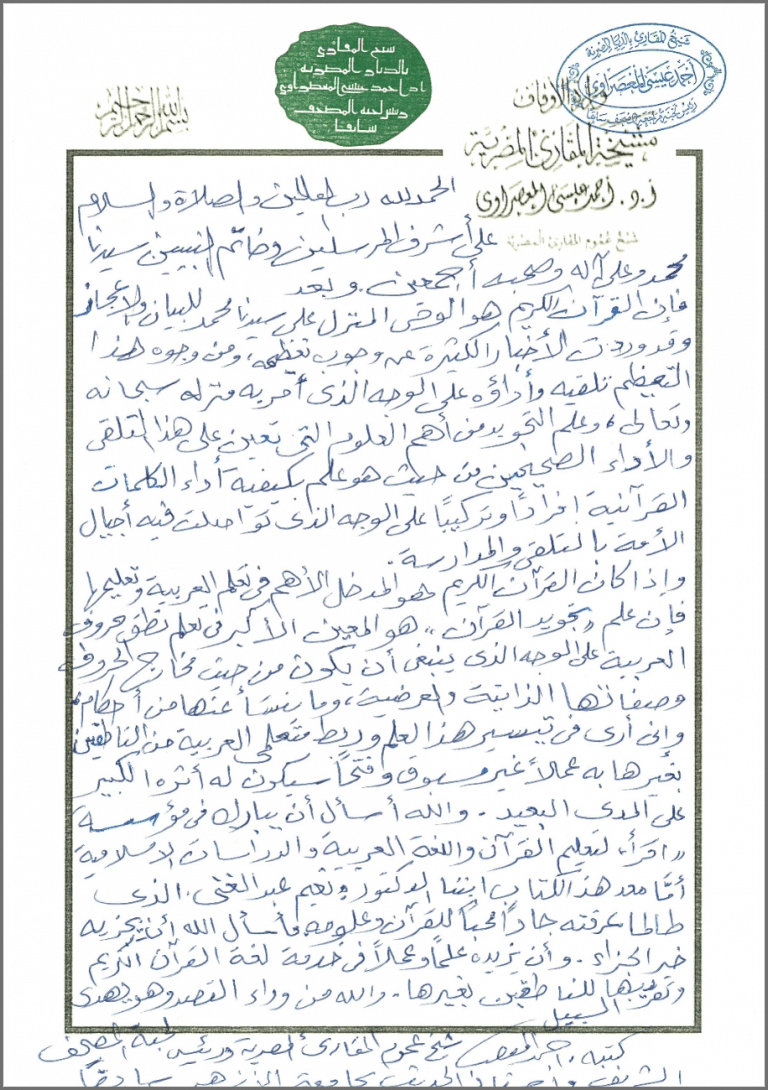 شيخ المقارئ
بالديار المصرية
أ.د/ أحمد عيسى المعصراوي
ورئيس لجنة المصحف
سابقا
شيخ المقارئ بالديار المصرية
أحمد عيسى المعصراوي
بسم الله الرحمن الرحيم
وزارة الأوقاف
مشيخة المقارئ المصرية
أ.د. أحمد عيسى المعصراوي
شيخ عموم المقارئ المصرية
الحمد لله رب العالمين والصلاة والسلام
على أشرف المرسلين وخاتم النبيين سيدنا
محمد وعلى آله وصحبه أجمعين. وبعد
فإن القرآن الكريم هو الوحى المنزل على سيدنا محمد للبيان والإعجاز
وقد وردت الأخبار الكثيرة عن وجوب تعظيمه، ومن وجوه هذا
التعظيم تلقيه وأداؤه على الوجه الذى أمر به منزله سبحانه
وتعالى، وعلم التجويد من أهم العلوم التى تعين على هذا التلقى
والأداء الصحيحين من حيث هو علم بكيفية أداء الكلمات
القرآنية إفرادًا وتركيبًا على الوجه الذى تواصلت فيه أجيال
الأمة بالتلقى والمدارسة.
وإذا كان القرآن الكريم هو المدخل الأهم فى تعلم العربية وتعليمها
فإن علم "تجويد القرآن" هو المعين الأكبر فى تعلم نطق حروف
العربية على الوجه الذى ينبغى أن يكون من حيث مخارج الحروف
وصفاتها الذاتية والعرضية، وما ينشأ عنها من أحكام،
وإنى أرى فى تيسير هذا العلم وربط متعلمى العربية من الناطقين
بغيرها به عملاً غير مسبوق وفتحًا سيكون له أثره الكبير
على المدى البعيد. والله أسأل أن يبارك فى مؤسسة
"اقرأ" لتعليم القرآن واللغة العربية والدراسات الإسلامية
أمّا معد هذا الكتاب ابننا الدكتور نعيم عبد الغنى. الذى
طالما عرفته جادًا محبًا للقرآن وعلومه فأسأل الله أن يجزيه
خير الجزاء. وأن يزيده علمًا وعملاً فى خدمة لغة القرآن الكريم
وتقريبها للناطقين بغيرها. والله من وراء القصد وهو يهدى
السبيل
كتبه. أحمد المعصراوي شيخ عموم المقارئ المصرية ورئيس لجنة المصحف
الشريف وأستاذ الحديث بجامعة الأزهر سابقًا